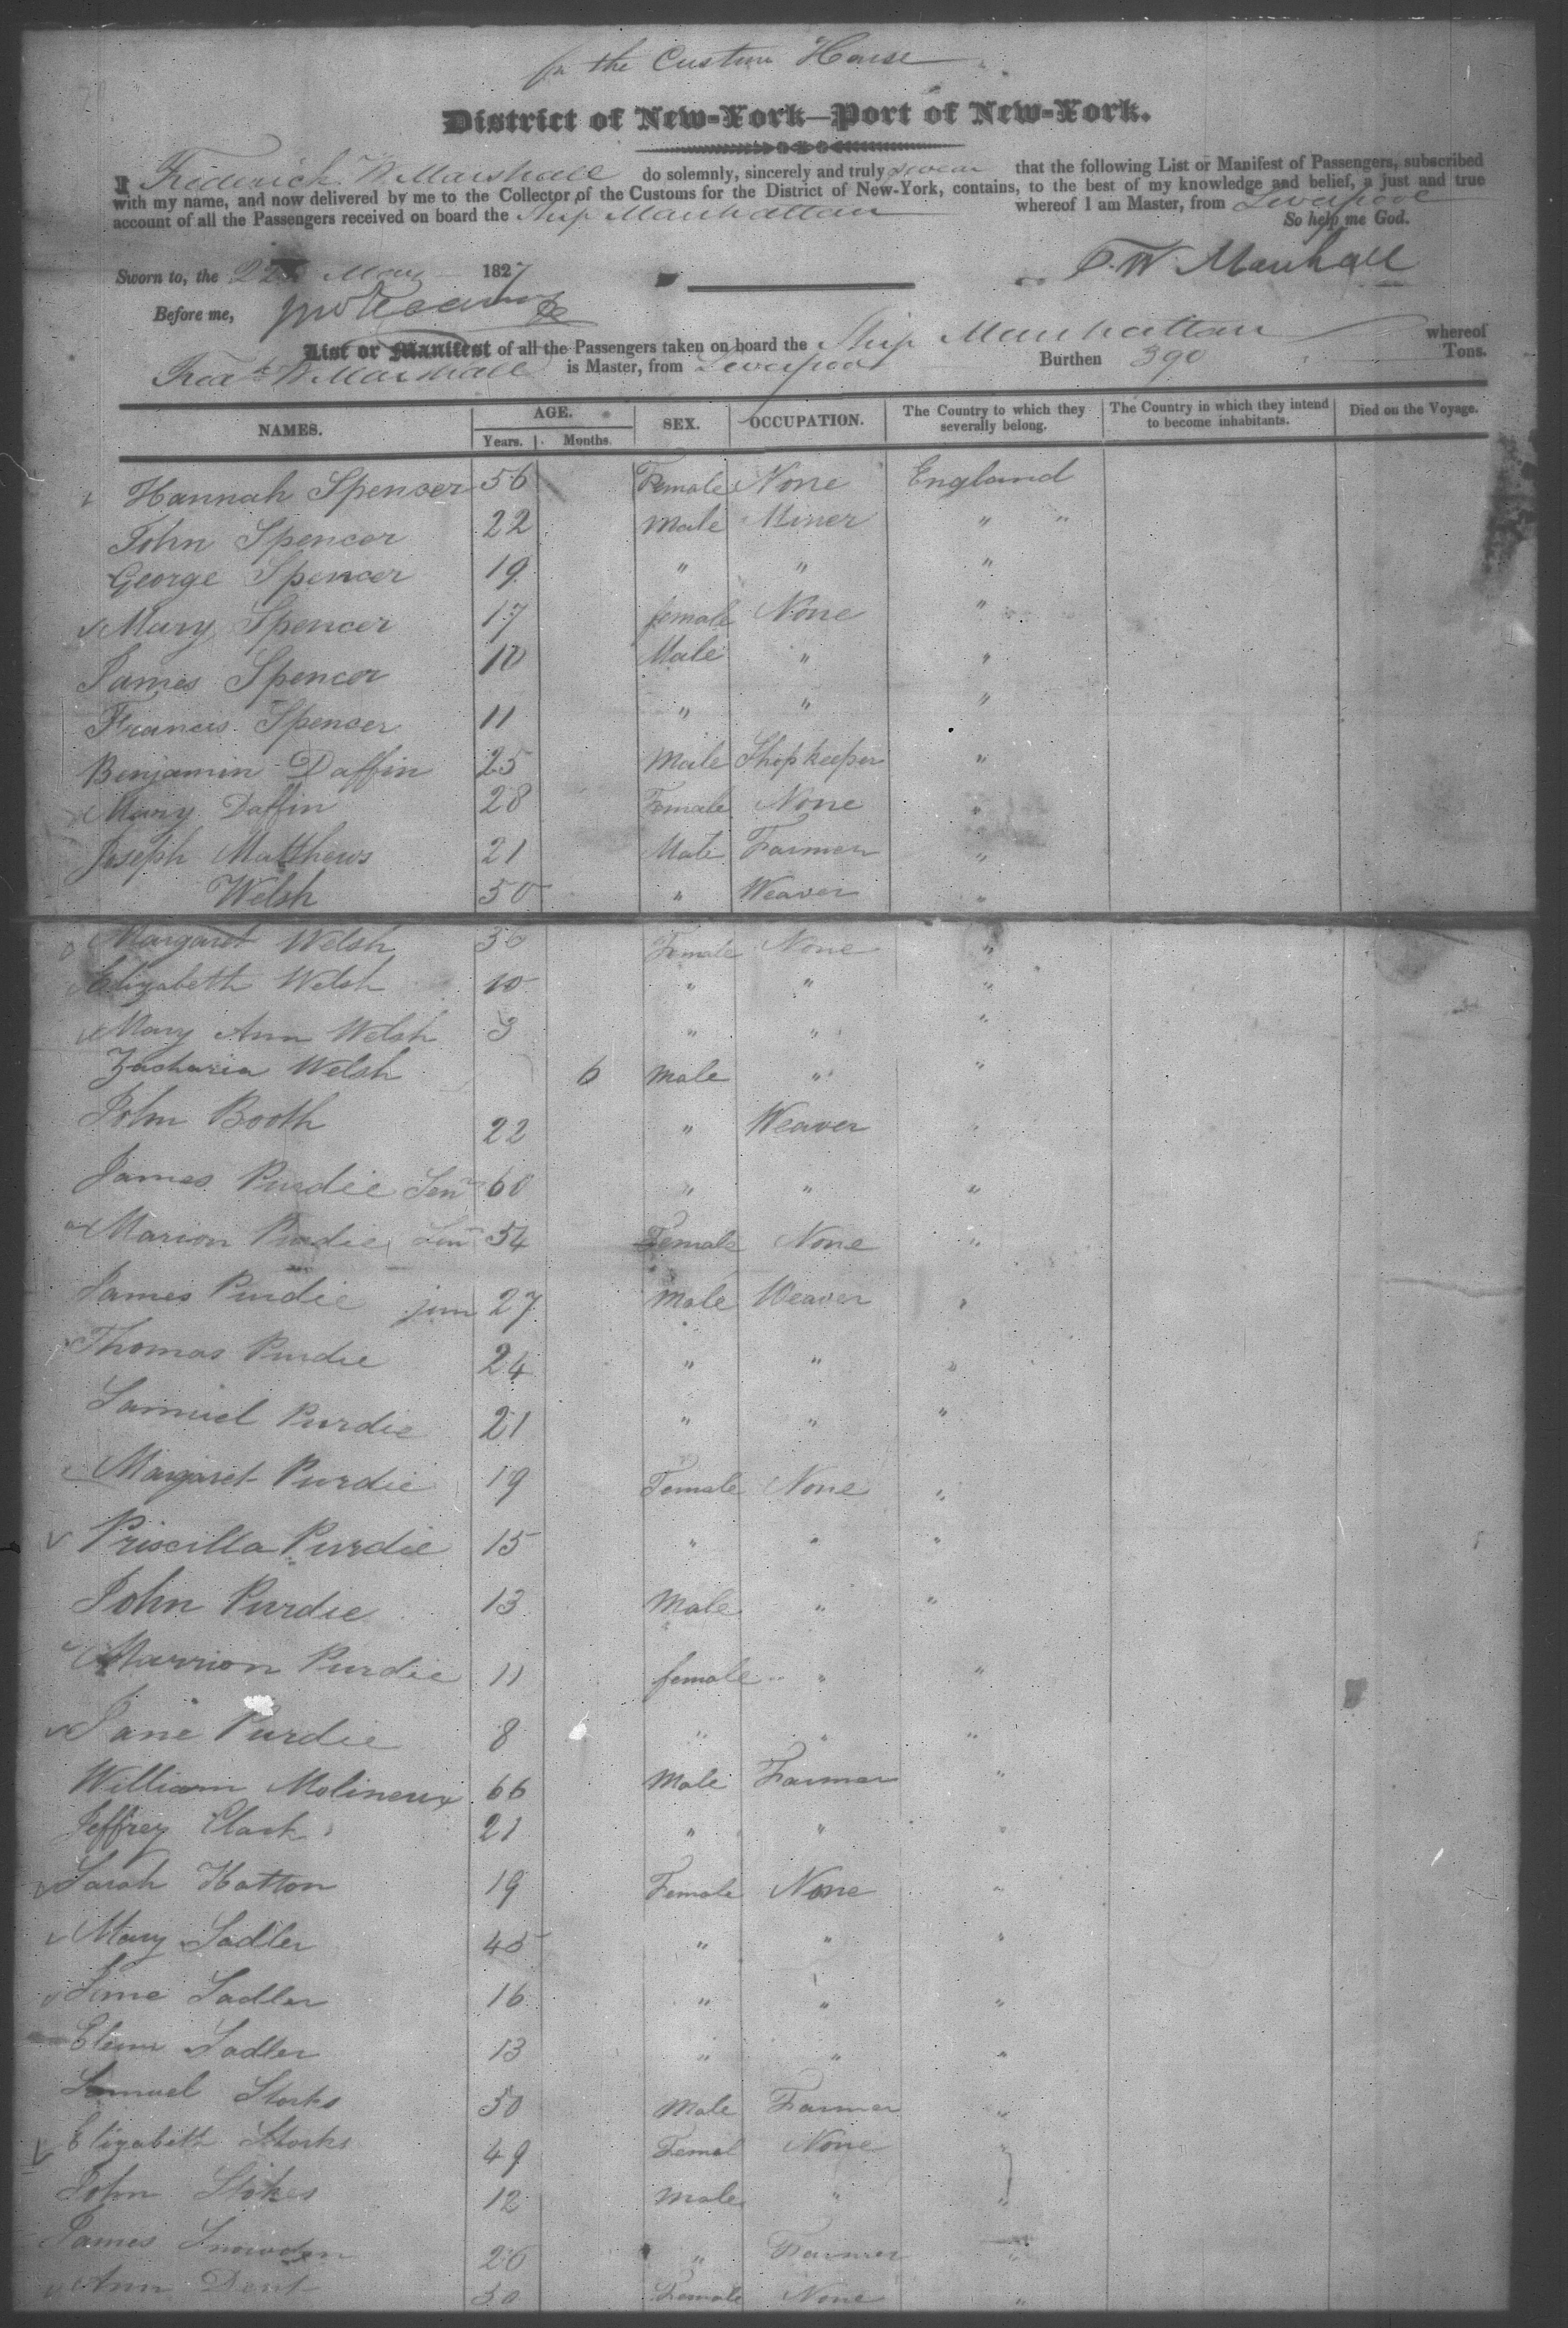 for the Custom House
District of New-York—Port of New-York.
I Frederick W Marshall do solemnly, sincerely and truly swear that the following List or Manifest of Passengers, subscribed
with my name, and now delivered by me to the Collector of the Customs for the District of New-York, contains, to the best of my knowledge and belief, a just and true
account of all the Passengers received on board the Ship Manhattan whereof I am Master, from Liverpool
So help me God.
Sworn to, the 22 May 1827 F. W. Marshall
Before me,
List or Manifest of all the Passengers taken on board the Ship Manhattan whereof
Fredk W Marshall is Master, from Liverpool Burthen 390 Tons.
NAMES. AGE. Years. Months. SEX. OCCUPATION. The Country to which they severally belong. The Country in which they intend to become inhabitants. Died on the Voyage.
Hannah Spencer 56 Female None England
John Spencer 22 Male Miner " "
George Spencer 19 " " "
Mary Spencer 17 female None "
James Spencer 10 Male " "
Francis Spencer 11 " " "
Benjamin Daffin 25 Male Shopkeeper "
Mary Daffin 28 Female None "
Joseph Matthews 21 Male Farmer "
Welsh 50 " Weaver "
Margaret Welsh 30 Female None "
Elizabeth Welsh 10 " " "
Mary Ann Welsh 3 " " "
Zacharia Welsh 6 Male " "
John Booth 22 " Weaver "
James Purdie Senr 60 " " "
Marion Purdie Senr 54 Female None "
James Purdie jun 27 Male Weaver "
Thomas Purdie 24 " " "
Samuel Purdie 21 " " "
Margaret Purdie 19 Female None "
Priscilla Purdie 15 " " "
John Purdie 13 Male " "
Marrion Purdie 11 female " "
Jane Purdie 8 " " "
William Molineux 66 Male Farmer "
Jeffrey Clark 21 " " "
Sarah Hatton 19 Female None "
Mary Sadler 45 " " "
Jane Sadler 16 " " "
Sadler 13 " " "
Samuel Storks 50 Male Farmer "
Elizabeth Storks 49 Femal None "
John Stokes 12 Male " "
James Snowden 26 " Farmer "
Ann Dent 30 Female None "